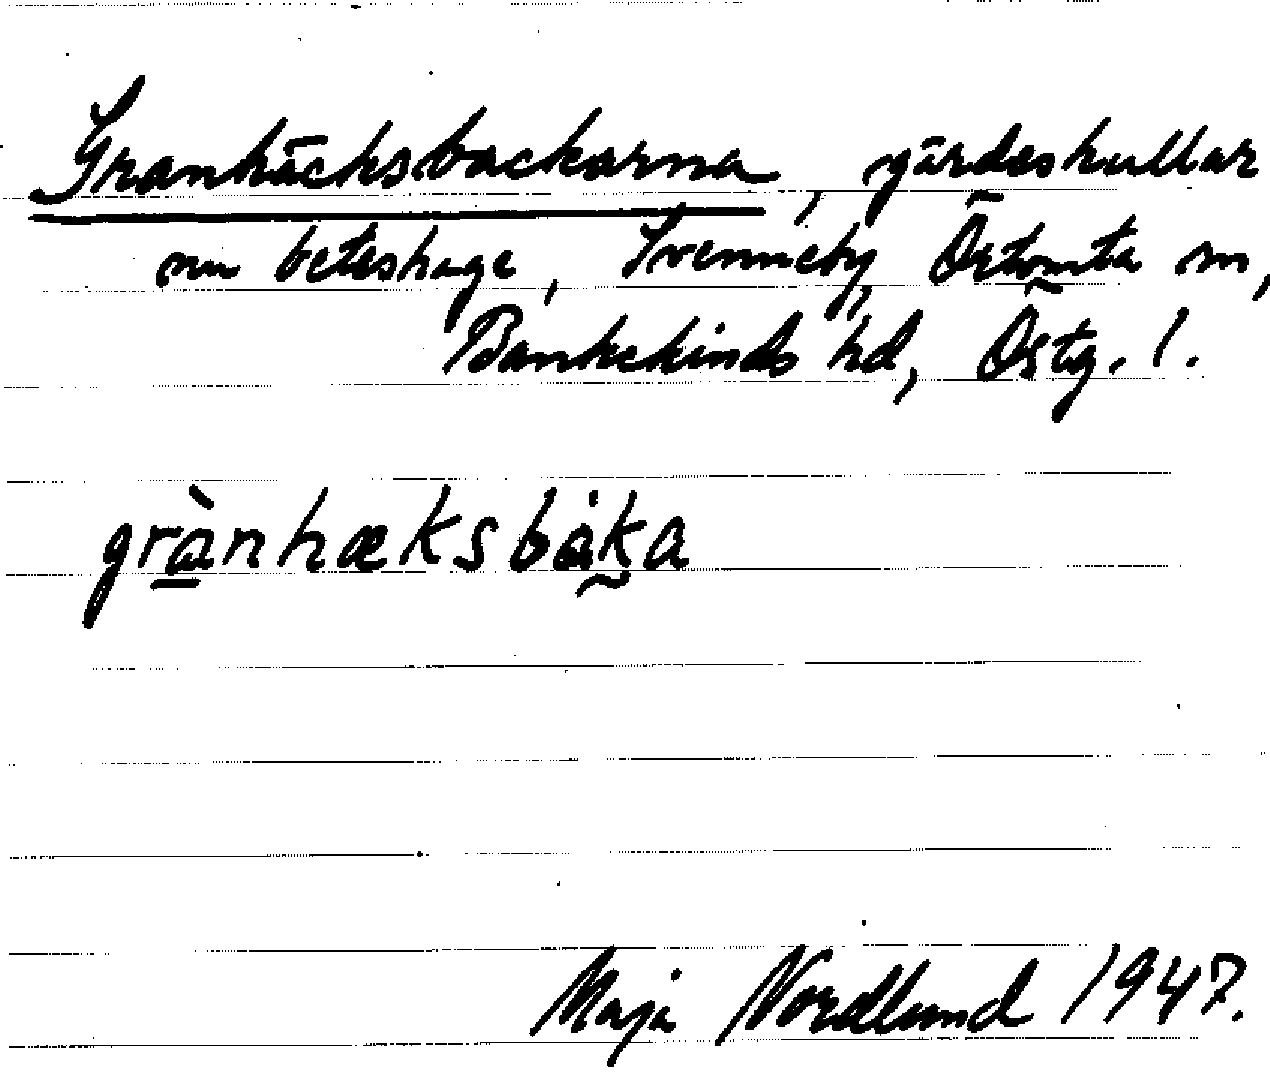 Granhäcksbackarna, gärdeskullar
nu beteshage, Svenneby, Östomta sn,
Bankekinds hd, Östg. l.
grànhæksbåka
Maja Nordlund 1947.